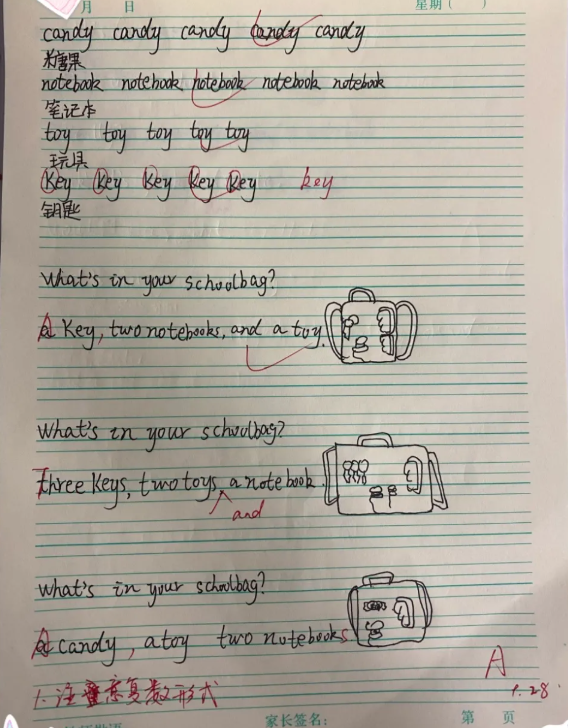 月 日 星期( )
candy candy candy candy candy
糖果
notebook notebook notebook notebook notebook
笔记本
toy toy toy toy toy
玩具
Key Key Key Key Key key
钥匙
What's in your schoolbag?
A Key, two notebooks, and a toy.
What's in your schoolbag?
Three Keys, two toys, a notebook.
and
What's in your schoolbag?
A candy, a toy two notebooks
1. 注意复数形式
A
1.28
家长签名: 第 页